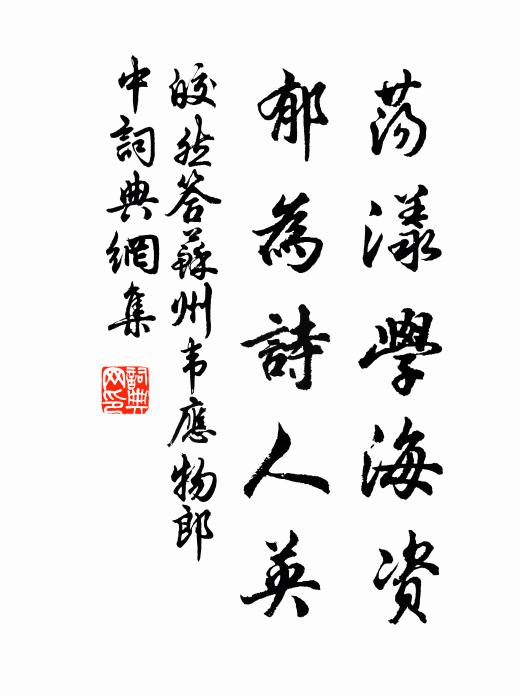 荡漾學海资
郁為詩人英
皎然答蘇州韦應物郎
中詞典網集
詞典
网印